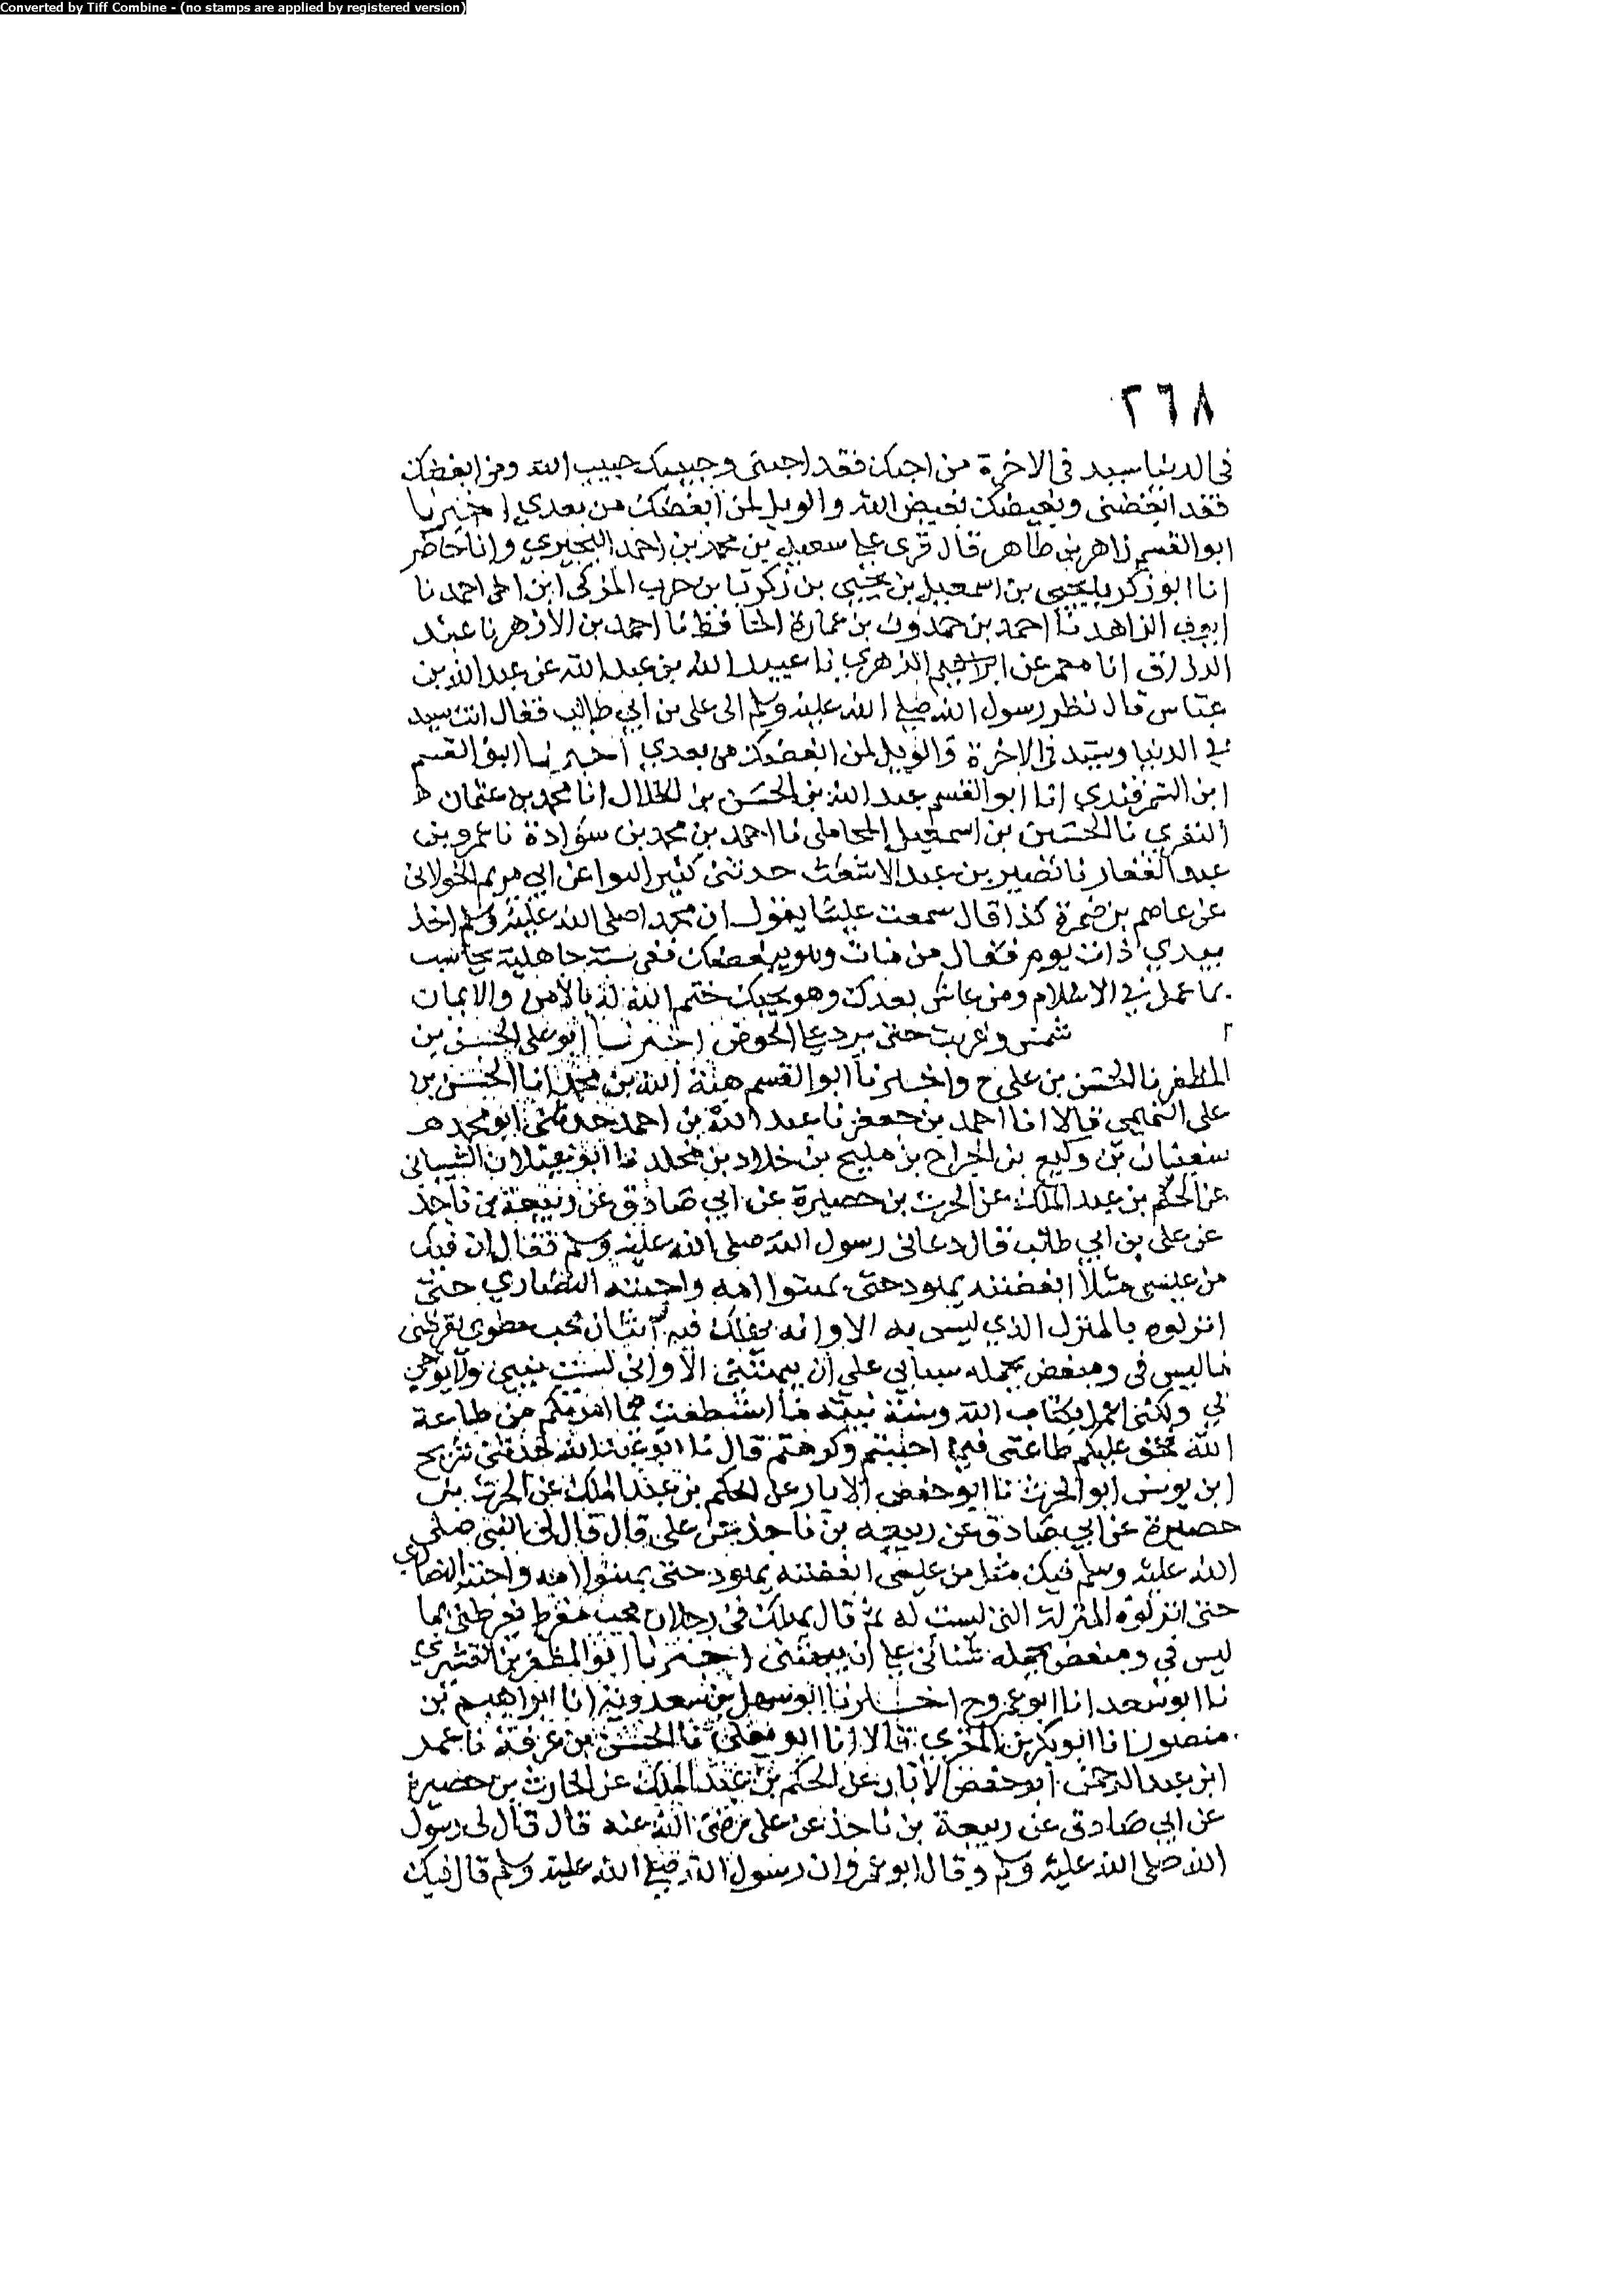 Converted by Tiff Combine - (no stamps are applied by registered version)
٢٦٨
في الدنيا سيد في الاخرة من احبك فقد احبني وحبيبك حبيب الله ومن ابغضك
فقد ابغضني وبغيضك بغيض الله والويل لمن ابغضك من بعدي اخبرنا
ابو القسم زاهر بن طاهر قال قرى على سعيد بن محمد بن احمد البحيري وانا حاضر
انا ابو زكريا يحيى بن اسمعيل بن يحيى بن زكريا بن حرب المزكى ابن اخى احمد نا
الزاهد نا احمد بن حمدون بن عمارة الحافظ نا احمد بن الازهر نا عبد
الرزاق انا معمر عن الزهري نا عبيد الله بن عبد الله عن عبد الله بن
عباس قال نظر رسول الله صلى الله عليه وسلم الى على بن ابي طالب فقال انت سيد
في الدنيا وسيد في الاخرة والويل لمن ابغضك من بعدي اخبرنا ابو القسم
ابن السمرقندي انا ابو القسم عبد الله بن الحسن بن الخلال انا محمد بن عثمان
النفري نا الحسين بن اسمعيل المحاملى نا احمد بن محمد بن سوادة نا عمرو بن
عبد الغفار نا نصير بن عبد الاشعث حدثني كثير النوا عن ابي مريم الخولانى
عن عاصم بن ضمرة كذا قال سمعت عليا يقول ان محمدا صلى الله عليه وسلم اخذ
بيدي ذات يوم فقال من مات وهو يبغضك ففى سنة جاهلية يحاسب
بما عمل في الاسلام ومن عاش بعدك وهو يحبك ختم الله له بالامن والايمان
شمس وغربت حتى يرد على الحوض اخبرنا ابو على الحسن بن
المظفر نا الحسن بن على ح واخبرنا ابو القسم هبة الله بن محمد انا الحسن بن
على التميمى قالا انا احمد بن جعفر نا عبد الله بن احمد حدثنى ابو محمد
سفيان بن وكيع بن الجراح بن مليح نا خالد بن مخلد نا ابو غيلان الشيبانى
عن الحكم بن عبد الملك عن الحرث بن حصيرة عن ابي صادق عن ربيعة بن ناجذ
عن على بن ابي طالب قال دعانى رسول الله صلى الله عليه وسلم فقال ان فيك
من عيسى مثلا ابغضته يهود حتى بهتوا امه واحبته النصاري حتى
انزلوه بالمنزل الذي ليس به الا وانه يهلك في اثنان محب يقرظنى
ما ليس فى ومبغض يحمله شنانى على ان يبهتنى الا وانى لست بنبي ولا يوحى
الي ولكنى اعمل بكتاب الله وسنة نبيه ما استطعت فما امرتكم من طاعة
الله فحق عليكم طاعتى فيما احببتم وكرهتم قال نا ابو عبد الله حدثنى سريج
ابن يونس ابو الحرث نا ابو حفص الابار عن الحكم بن عبد الملك عن الحرث بن
حصيرة عن ابي صادق عن ربيعة بن ناجذ عن على قال قال لى النبى صلى
الله عليه وسلم فيك مثل من عيسى ابغضته يهود حتى بهتوا امه واحبته النصاري
حتى انزلوه المنزلة التى ليست له ثم قال يهلك فى رجلان محب مفرط يقرظنى بما
ليس في ومبغض يحمله شنانى على ان يبهتنى اخبرنا ابو المظفر بن القشيري
نا ابو سعد انا ابو عمرو ح اخبرنا ابو سهل بن سعدوية انا ابراهيم بن
منصور انا ابو بكر بن المقري قالا انا ابو يعلى نا الحسن بن عرفة نا عمر
ابن عبد الرحمن ابو حفص الابار عن الحكم بن عبد الملك عن الحارث بن حصيرة
عن ابي صادق عن ربيعة بن ناجذ عن على رضى الله عنه قال قال لى رسول
الله صلى الله عليه وسلم وقال ابو عمرو ان رسول الله صلى الله عليه وسلم قال فيك